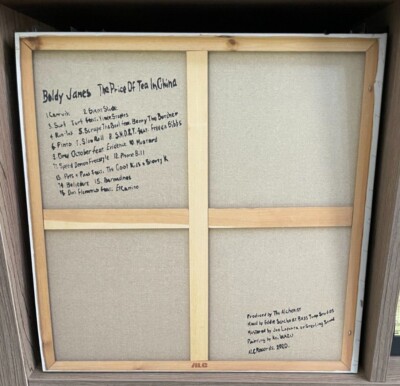 Boldy James The Price Of Tea In China
1. Carruth 2. Giant Slide
3. Surf & Turf feat. Vince Staples
4. Run-Ins 5. Scrape The Bowl feat. Benny The Butcher
6. Pinto 7. Slow Roll 8. S.N.O.R.T. feat. Freddie Gibbs
9. Grey October feat. Evidence 10. Mustard
11. Speed Demon Freestyle 12. Phone Bill
13. Pots & Pans feat. The Cool Kids & Shorty K
14. Belvedere 15. Normalness
16. Don Flamenco feat. Elcamino
Produced by The Alchemist
Mixed by Eddie Sancho at
Mastered by Joe LaPorta at Sterling Sound
Painting by
ALC Records 2020.
ALC